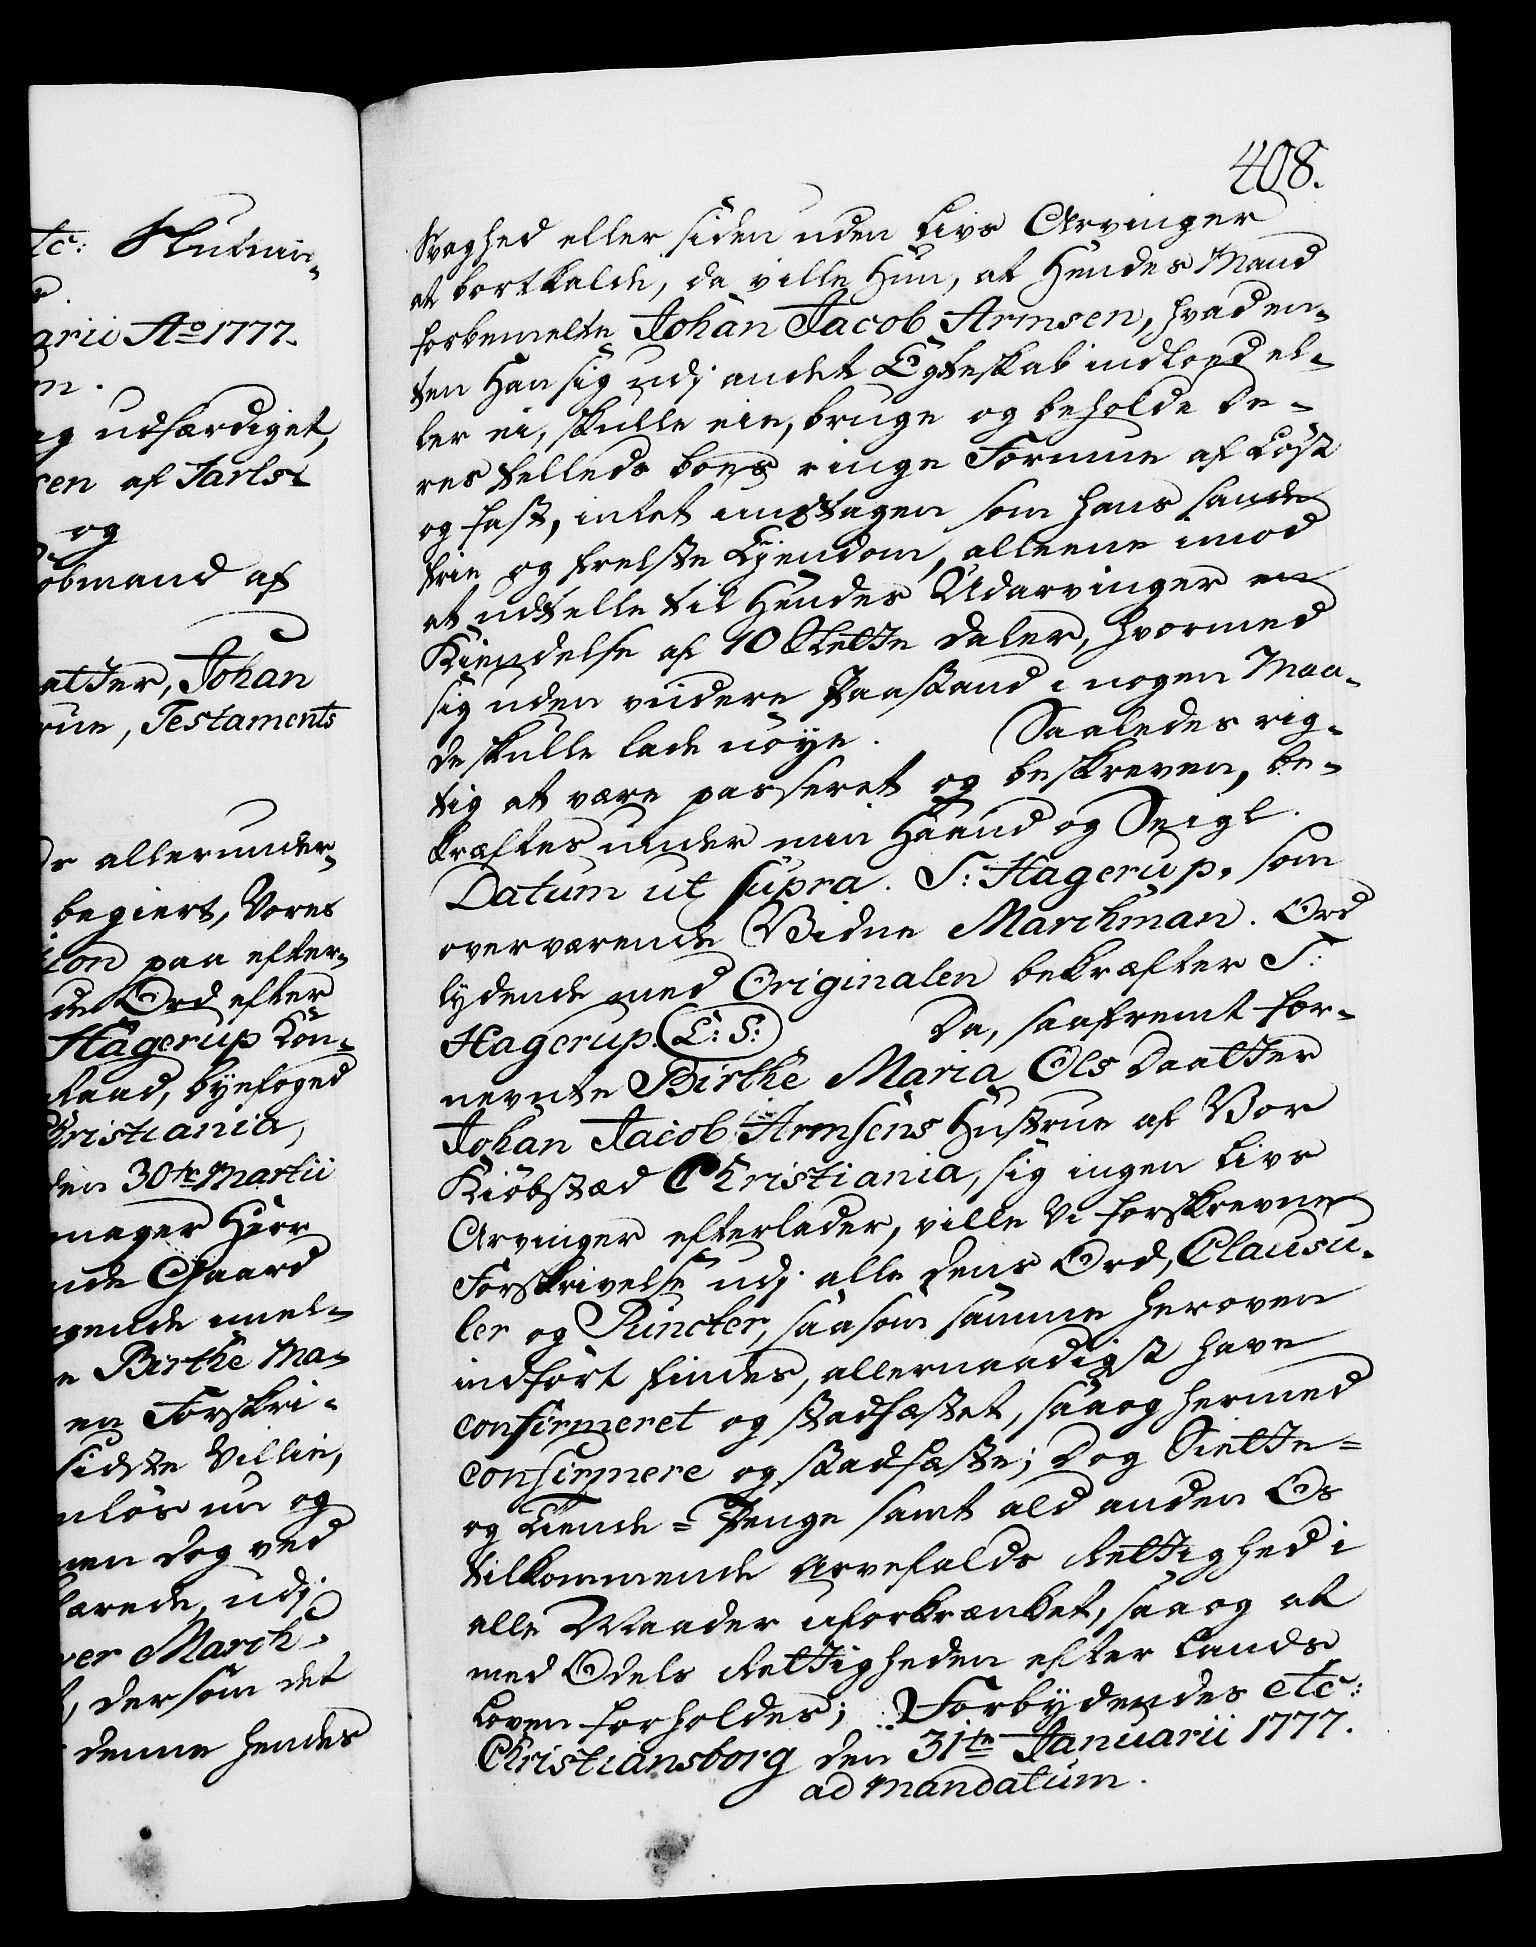 tc: Slutnin-
arii Ao 1777.
eg udfærdiget,
sen af Jarls-
og
øbmand af
atter, Johan
rue, Testaments
allerunder-
begiert, Vores
ion paa efter-
de Ord efter
Hagerup Kon-
Raad, byefoged
Christiania,
den 30te Martii
mager Herr
nde Gaard
gende mel-
e Birthe Ma-
en Forskri-
sidste Villie,
nløs nu og
men dog ved
larede, udj
ver March-
, dersom det
denne hendes
408.
Svaghed eller siden uden Livs Arvinger
at bortkalde, da ville Hun, at Hendes Mand
forbemelte Johan Jacob Armsen, hvaden-
ten Han sig udj andet Egteskab indloed el-
ler ei, skulle eie, bruge og beholde De-
res felleds boes ringe Formue af Løst
og fast, intet undtagen som hans sande
frie og frelste Eyendom, alleene imod
at udtelle til Hendes Udarvinger en
Kiendelse af 10 Slette Daler, hvormed
sig uden viidere Paastand i nogen Maa-
de skulle lade nøye. Saaledes rig-
tig at være passeret og beskreven, be-
kræftes under min Haand og Seigl.
Datum ut supra. S: Hagerup. som
overværende Vidne Marchman. Ord
lydende med Originalen bekræfter S:
Hagerup. (L: S:) Da, saafremt for-
nevnte Birthe Maria Ols Daatter
Johan Jacob Armsens Hustrue af Vor
Kiøbstæd Christiania, sig ingen Livs
Arvinger efterlader, ville Vi forskrevne
Forskrivelse udj alle dens Ord, Clausu-
ler og Puncter, saasom samme heroven
indført findes, allernaadigst have
confirmeret og stadfæstet, saa og hermed
confirmere og stadfæste; Dog Siette-
og Tiende-Penge samt ald anden Os
tilkommende Arvefalds Rettighed i
alle Maader uforkrænket, saa og at
med Odels Rettigheden efter Lands
Loven forholdes; Forbydendes etc:
Christiansborg den 31te Januarii 1777.
ad mandatum.